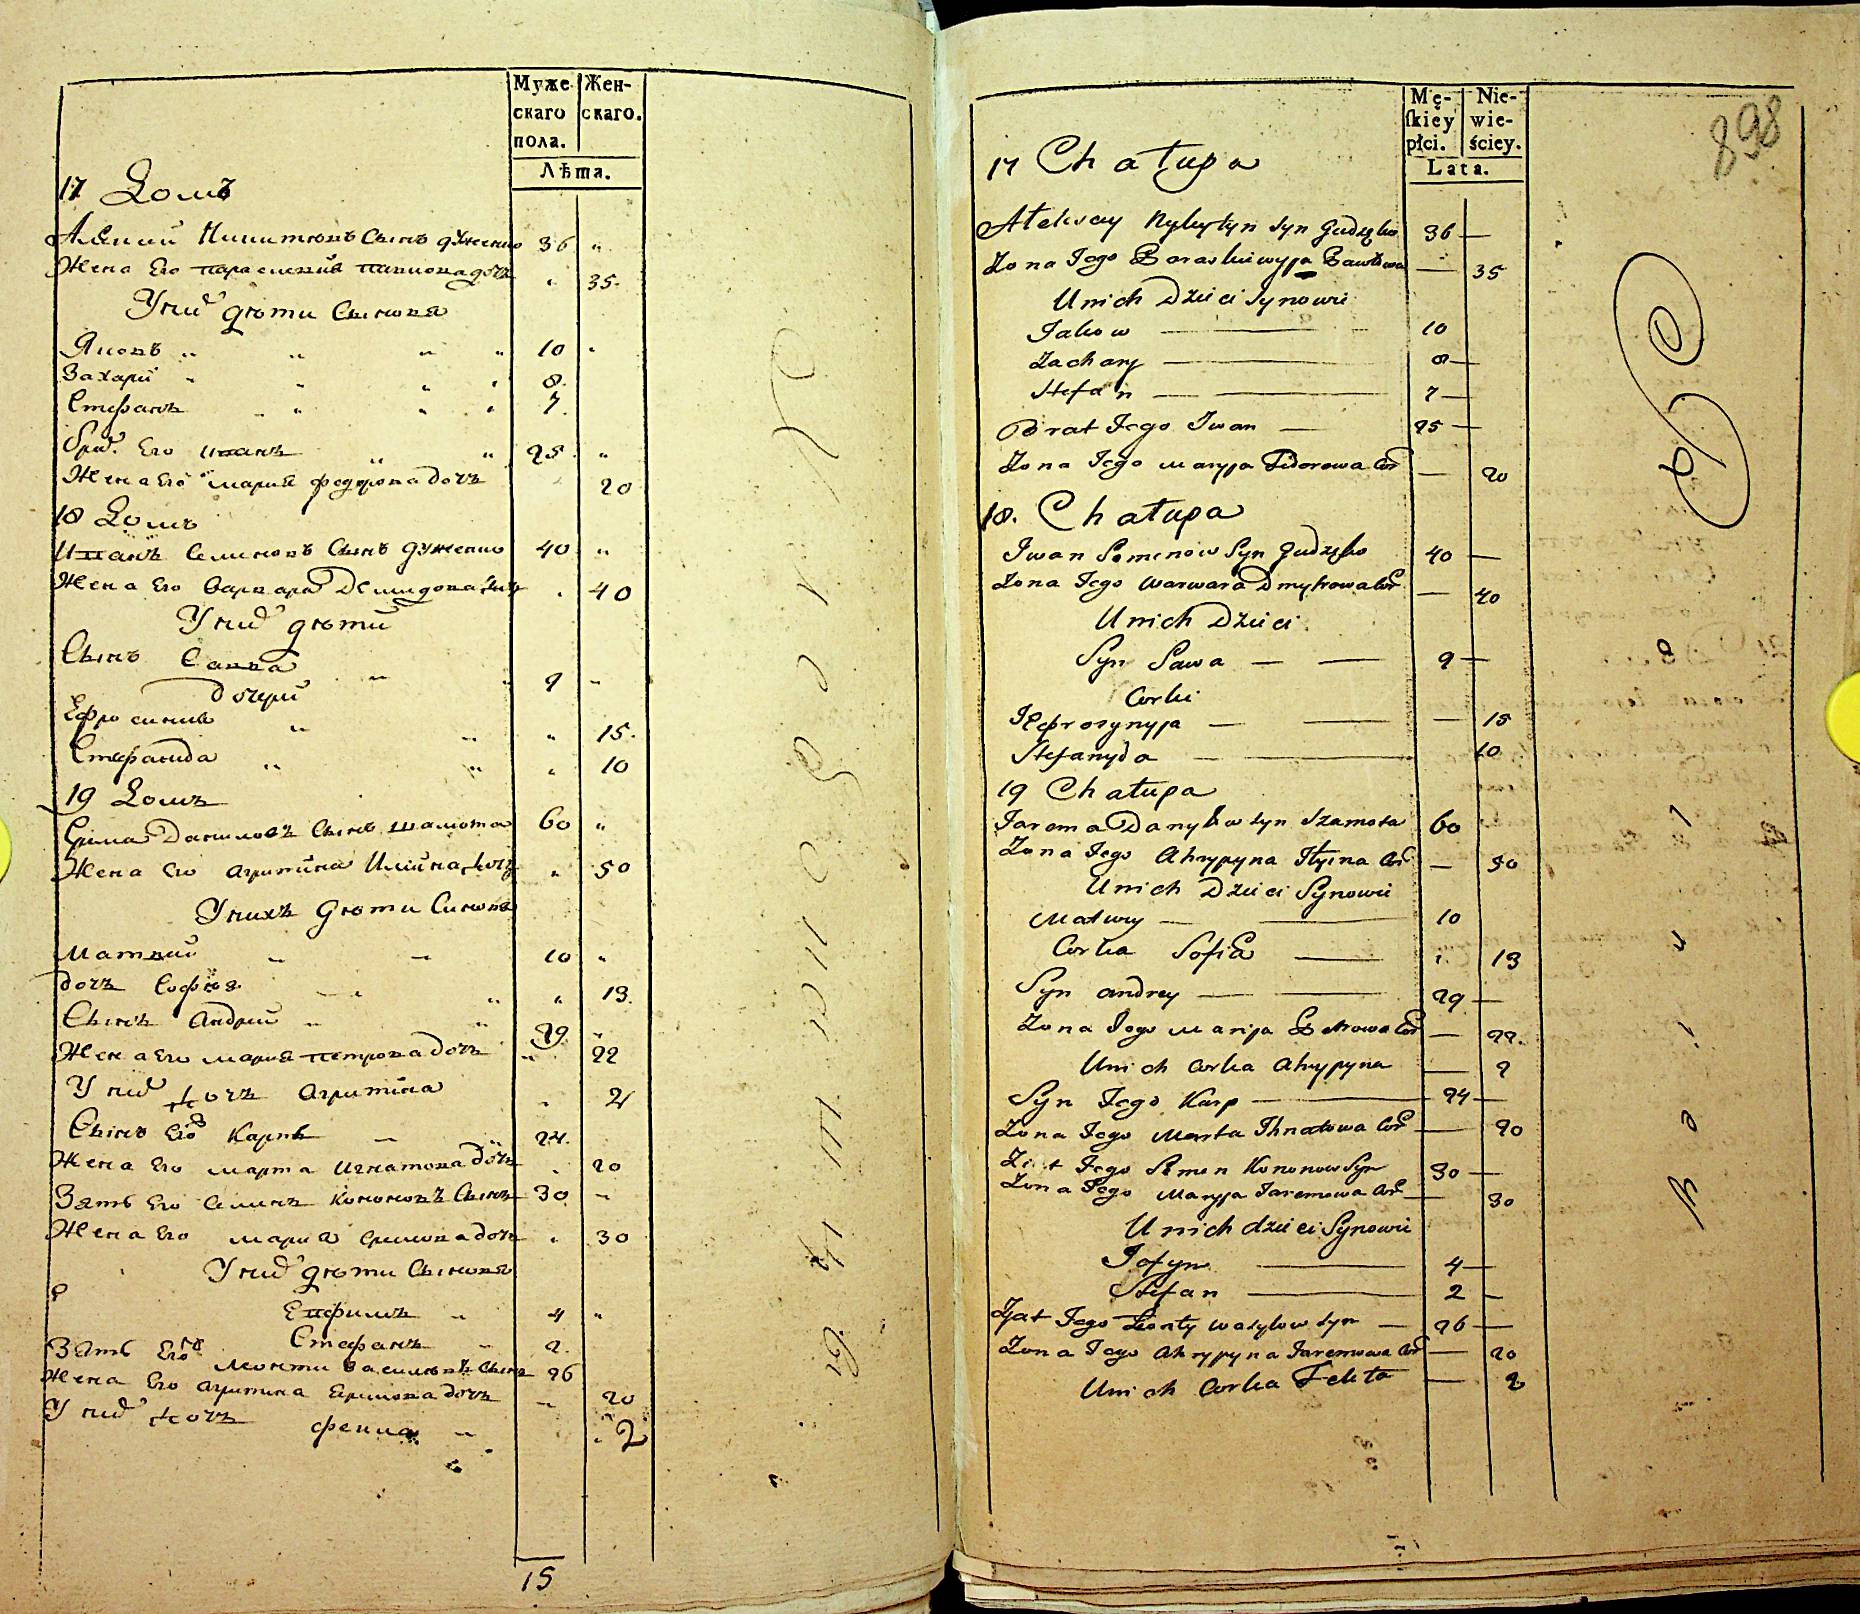 Муже
скаго
пола.
Жен-
скаго.
Лѣта.
17 Домъ
Алексий Никитинъ Сынъ 36 "
Жена Его Параскевия Павлова дочь " 35
У них дѣти Сыновя
Яковъ 10 "
Захарій 8
Стефанъ 7
Брат Его Иванъ 25 "
Жена Его Мария Федорова дочь 20
18 Домъ
Иванъ Семеновъ Сынъ 40 "
Жена Его Варвара Демидова дочь " 40
У них дѣти
Сынъ Савва 9 "
дочери
Ефросиния " 15
Стефанида " 10
19 Домъ
Ерема Данилов Сынъ Шамота 60 "
Жена Его Агрипина Илина дочь " 50
У нихъ дѣти Синовя
Матвий 10 "
дочь Софія " 13
Сынъ Андрий 29 "
Жена Его Мария Петрова дочь " 22
У них дочь Агрипіна " 2
Сынъ Его Карпъ 24
Жена Его Марта Игнатова дочь " 20
Зять Его Семинъ Кононовъ Сынъ 30 "
Жена Его Мария Еремова дочь " 30
У них дѣти Сыновя
Евфимъ 4 "
Стефанъ 2
Зять Его Леонти Василювъ Сынъ 26
Жена Его Агрипина Еримова дочь " 20
У них дочь Фекла " 2
15
Mę-
ſkiey
płci.
Nie-
wie-
ściey.
Lata.
898
17 Chałupa
Ałeksay Nykytyn syn Gudzęko 36 —
Zona Jego Paraskiewyja Pawłowa — 35
U nich Dzieci Synowie
Jakow — 10
Zachary — 8 —
Stefan — 7 —
Brat Jego Iwan — 25 —
Zona Jego Maryja Fidorowa Cor — 20
18. Chałupa
Iwan Semenow Syn Gudzęko 40 —
Zona Jego Warwara Dmytrowa Cor — 40
U nich Dzieci
Syn Sawa — 9 —
Corki
Jefrozynyja — 15
Stefanyda — 10
19 Chałupa
Jarema Danyłow syn Szamota 60
Zona Jego Ahrypyna Iłyina Cor — 50
U nich Dzieci Synowie
Matwiy — 10
Corka Sofia — 13
Syn Andrey — 29 —
Zona Jego Marija Petrowa Cor — 22.
U nich Corka Ahrypyna — 2
Syn Jego Karp — 24 —
Zona Jego Marta Ihnatowa Cor — 20
Ziat Jego Semen Kononow Syn 30 —
Zona Jego Maryja Jaremowa Cor — 30
U nich dzieci Synowie
Jofym — 4 —
Stefan — 2 —
Zjat Jego Leonty Wasylow syn — 26 —
Zona Jego Ahrypyna Jaremowa Cor — 20
U nich Corka Fekła — 2